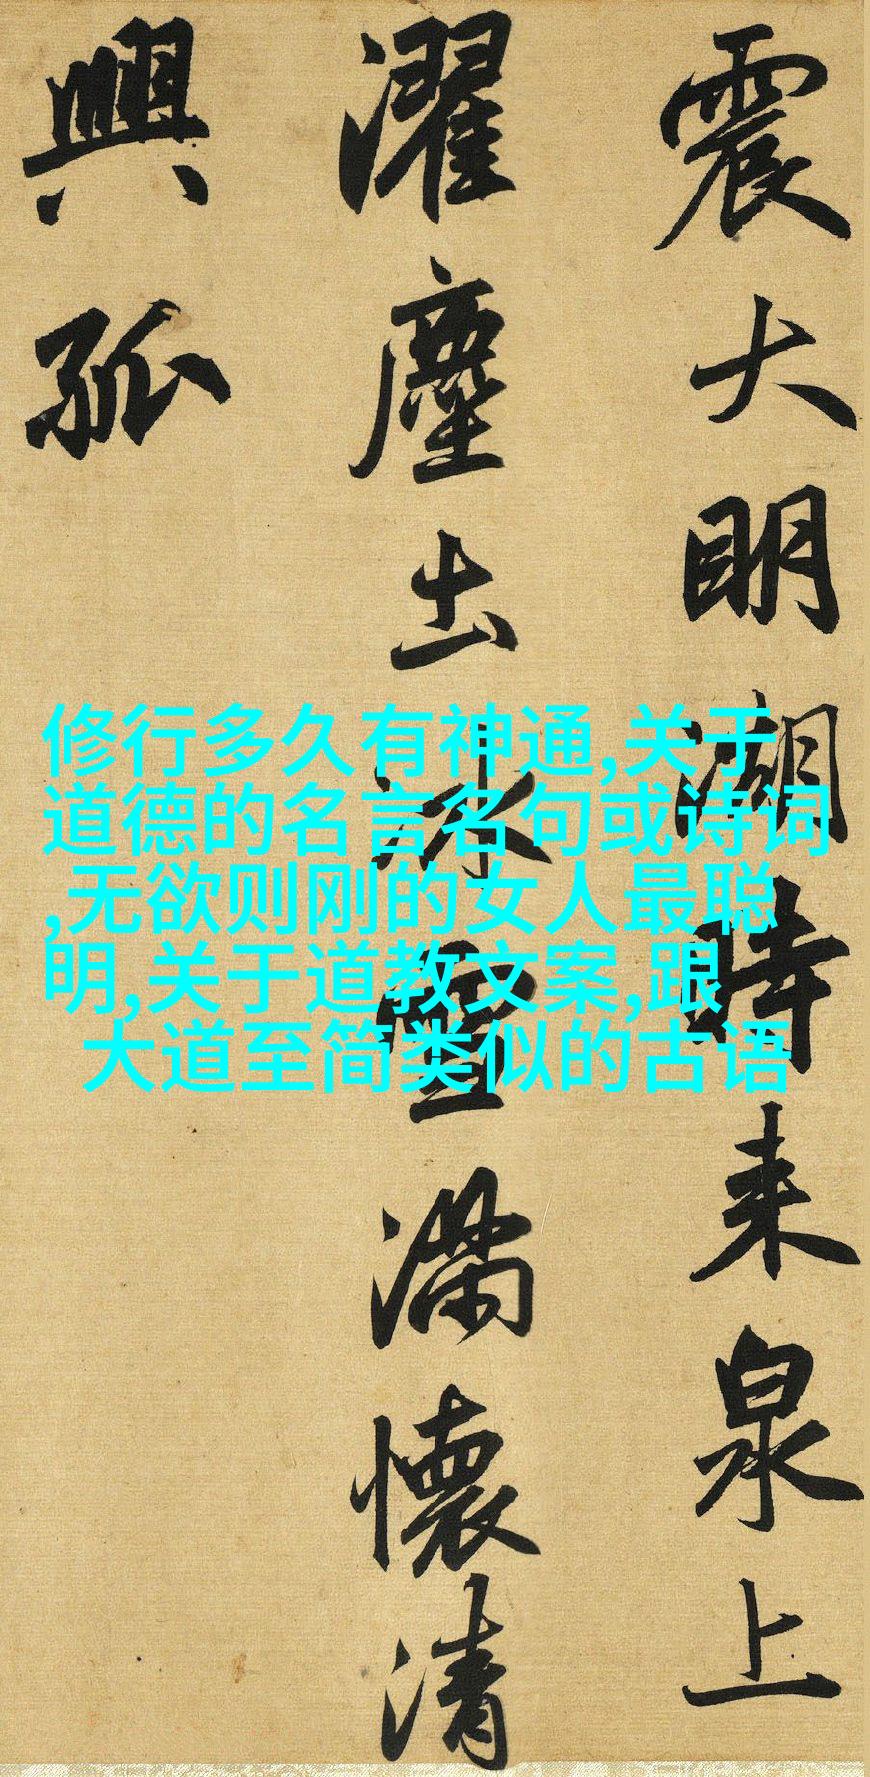 震大明湖時来泉上
濯塵土冰雪满懷清
興孤
修行多久有神通,关于
道德的名言名句或诗词
,无欲则刚的女人最聪
明,关于道教文案,跟
大道至简类似的古语